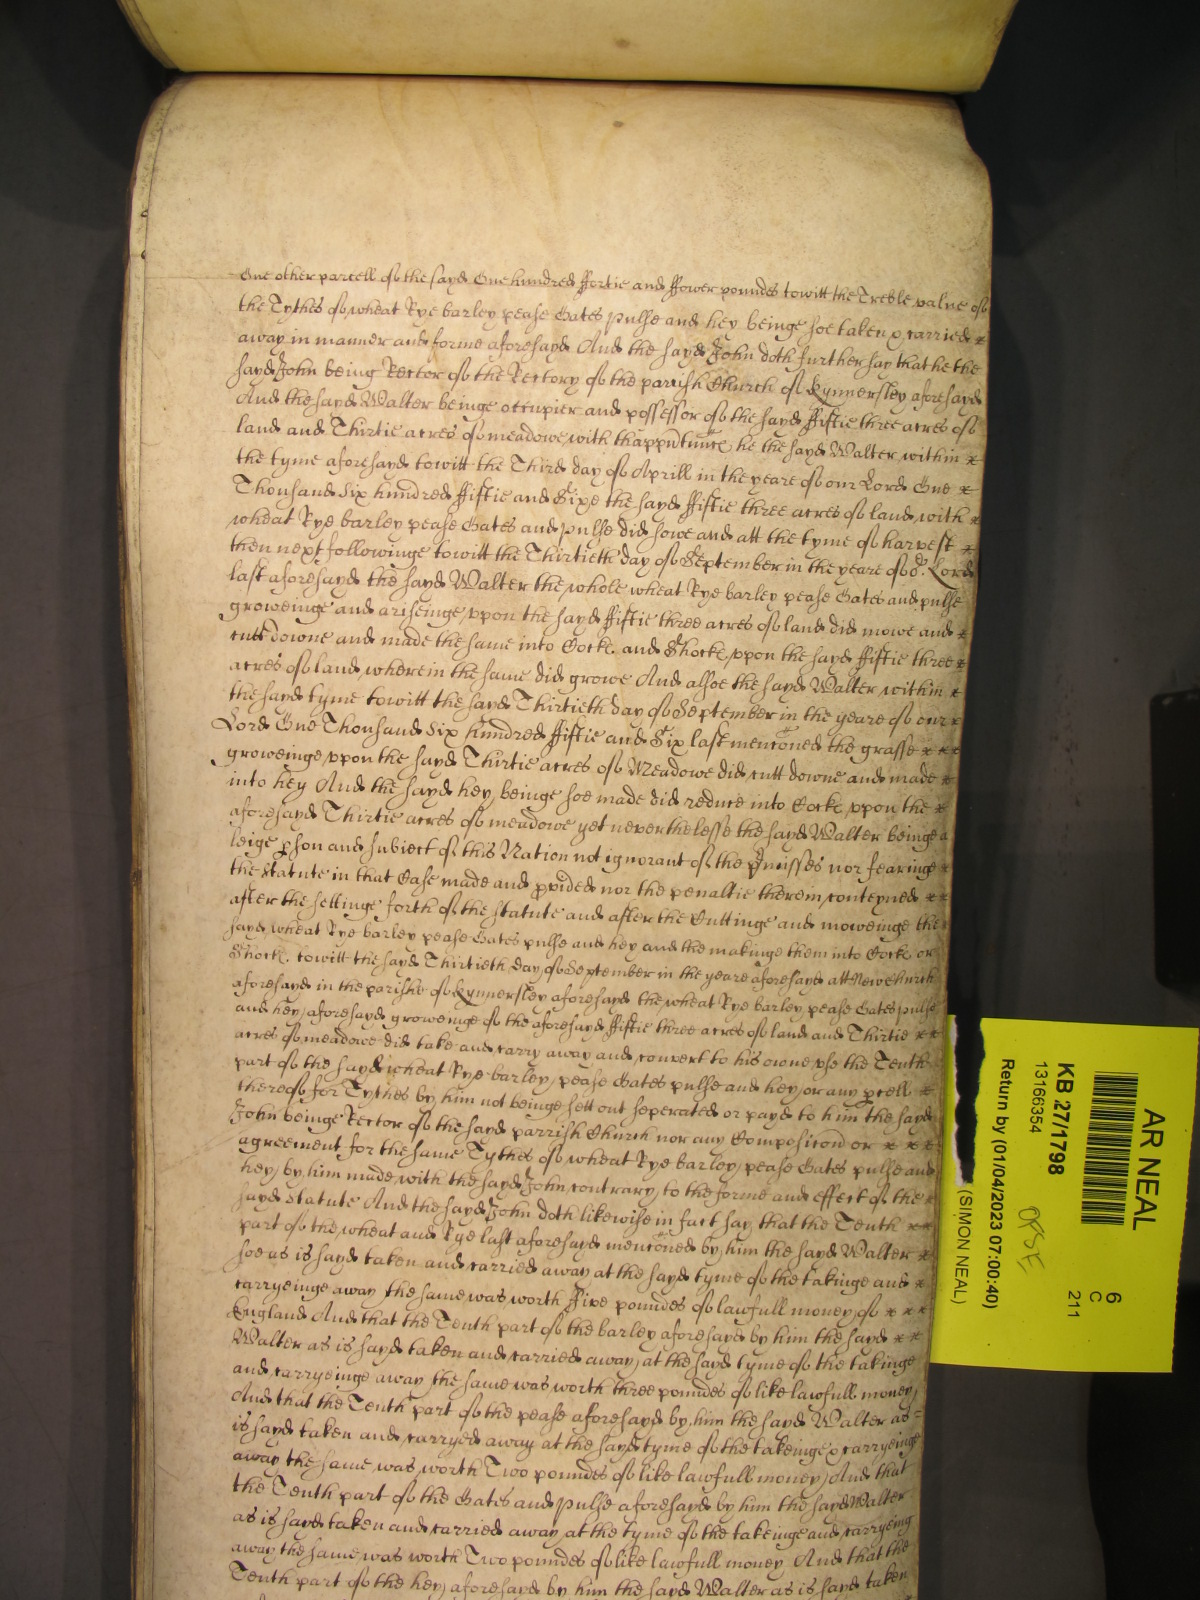 One other parcell of the sayd One hundred ffortie and ffower poundes towitt the Treble value of
the Tythes of wheat Rye barley pease Oates pulse and hey beinge soe taken & carried
away in manner and forme aforesayd And the sayd John doth further say that he the
sayd John being Rector of the Rectory of the parish Church of Kynnersley aforesayd
And the sayd Walter beinge occupier and possessor of the sayd ffiftie three acres of
land and Thirtie acres of meadowe with thapptunces he the sayd Walter within
the tyme aforesayd towitt the Third day of Aprill in the yeare of our Lord One
Thousand Six hundred ffiftie and Sixe the sayd ffiftie three acres of land with
wheat Rye barley pease Oates and pulse did sowe and att the tyme of harvest
then next followinge towitt the Thirtieth day of September in the yeare of or Lord
last aforesayd the sayd Walter the whole wheat Rye barley pease Oates and pulse
groweinge and ariseinge vppon the sayd ffiftie three acres of land did mowe and
cutt downe and made the same into Cocke and Shocke vppon the sayd ffiftie three
acres of land wherein the same did growe And alsoe the sayd Walter within
the sayd tyme towitt the sayd Thirtieth day of September in the yeare of our
Lord One Thousand Six hundred ffiftie and Six last menconed the grasse
groweinge vppon the sayd Thirtie acres of Meadowe did cutt downe and made
into hey And the sayd hey beinge soe made did reduce into Cocke vppon the
aforesayd Thirtie acres of meadowe yet neverthelesse the sayd Walter beinge a
leige pson and subiect of this Nation not ignorant of the pmisses nor fearinge
the statute in that Case made and pvided nor the penaltie therein conteyned
after the settinge forth of the statute and after the Cuttinge and moweinge the
sayd wheat Rye barley pease Oates pulse and hey and the makinge them into Cocke or
Shocke towitt the sayd Thirtieth day of September in the yeare aforesayd att Newchurch
aforesayd in the parishe of Kynnersley aforesayd the wheat Rye barley pease Oates pulse
and hey aforesayd groweinge of the aforesayd ffiftie three acres of land and Thirtie
acres of meadowe did take and carry away and convert to his owne vse the Tenth
part of the sayd wheat Rye barley pease Oates pulse and hey or any pcell
thereof for Tythes by him not beinge sett out seperated or payd to him the sayd
John beinge Rector of the sayd parrish Church nor any Composicon or
agreement for the same Tythes of wheat Rye barley pease Oates pulse and
hey by him made with the sayd John contrary to the forme and effect of the
sayd statute And the sayd John doth likewise in fact say that the Tenth
part of the wheat and Rye last aforesayd menconed by him the sayd Walter
soe as is sayd taken and carried away at the sayd tyme of the takinge and
carryeinge away the same was worth ffive poundes of lawfull money of
England And that the Tenth part of the barley aforesayd by him the sayd
Walter as is sayd taken and carried away at the sayd tyme of the takinge
and carryeinge away the same was worth three poundes of like lawfull money
And that the Tenth part of the pease aforesayd by him the sayd Walter as
is sayd taken and carryed away at the sayd tyme of the takeinge & carryeinge
away the same was worth Two poundes of like lawfull money And that
the Tenth part of the Oates and pulse aforesayd by him the sayd Walter
as is sayd taken and carried away at the tyme of the takeinge and carryeing
away the same was worth Two poundes of like lawfull money And that the
Tenth part of the hey aforesayd by him the sayd Walter as is sayd taken
AR NEAL
6
C
211
KB 27/1798
13166354
OPSE
Return by (01/04/2023 07:00:40)
(SIMON NEAL)